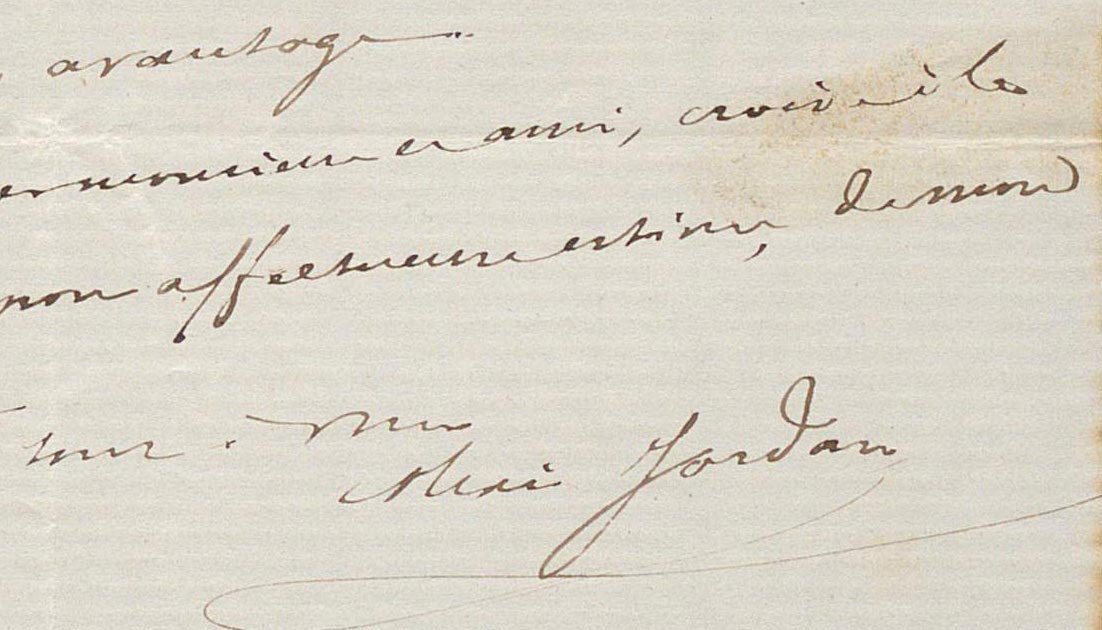 avantage
monsieur et ami, croire à la
mon affectueuse estime, de mon
tour
Alexis Jordan